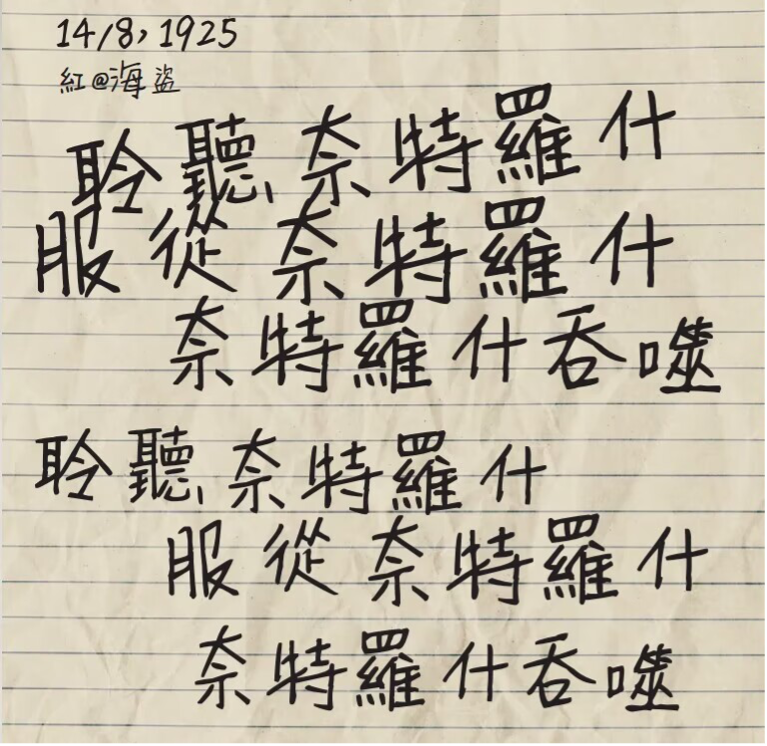 14/8, 1925
紅@海盜
聆聽奈特羅什
服從奈特羅什
奈特羅什吞噬
聆聽奈特羅什
服從奈特羅什
奈特羅什吞噬